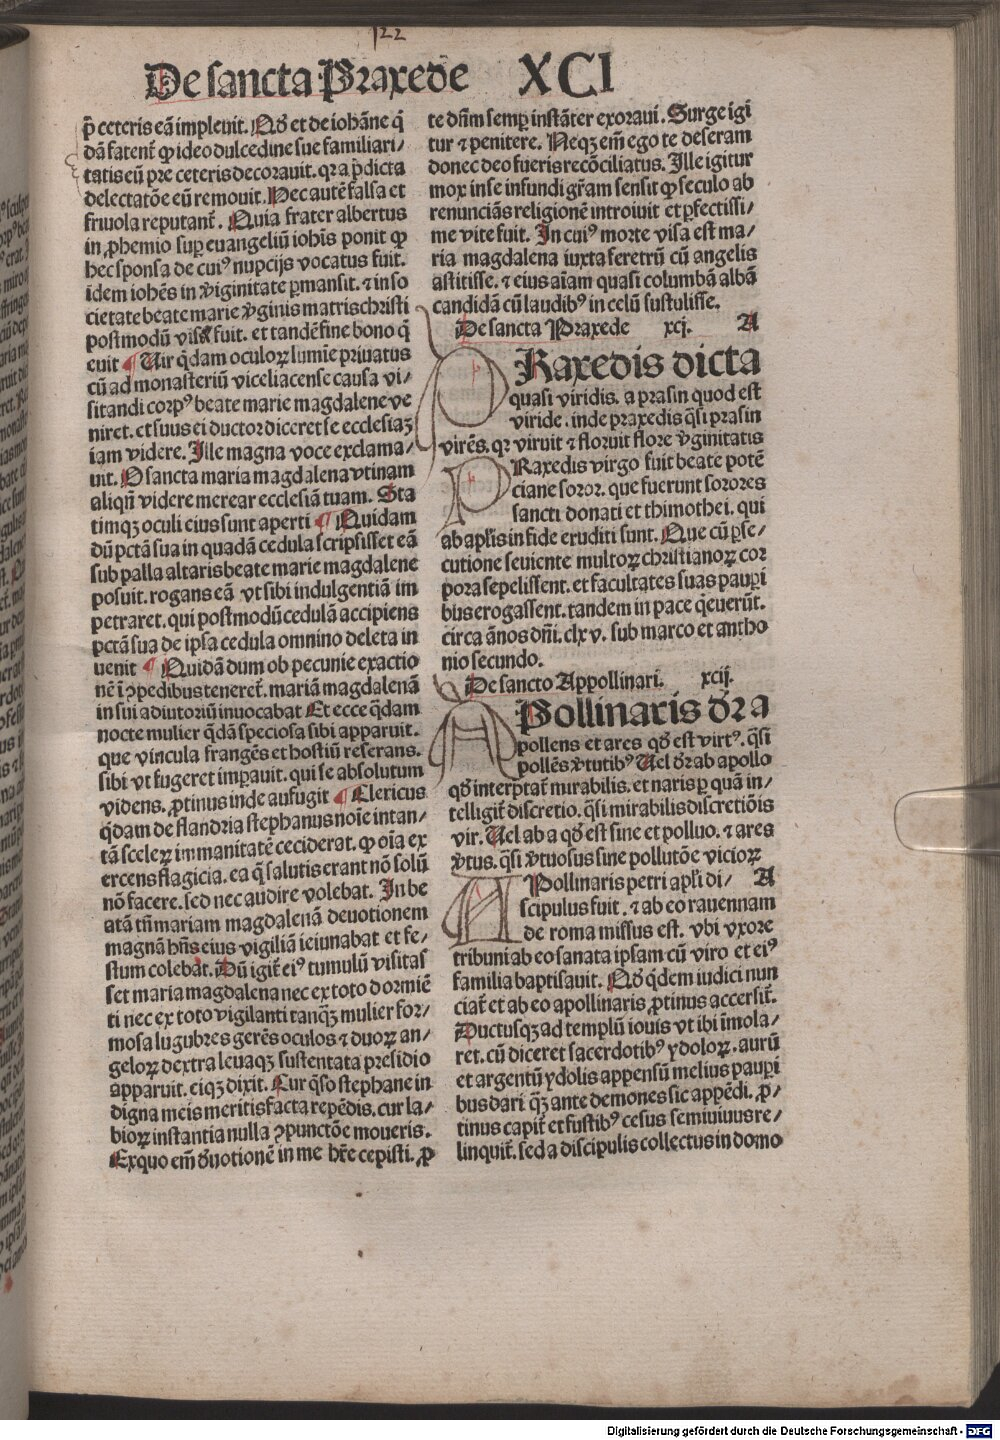 122
De sancta Praxede XCI
p̄ ceteris eā impleuit. Qď et de iohāne q̇
dā fatent̄ ꝙ ideo dulcedine sue familiari⸗
tatis eū pre ceteris decorauit. qꝛ a p̄dicta
delectatōe eū remouit. Nec autē falsa et
friuola reputant̄. Quia frater albertus
in ꝓhemio suꝑ euangeliū iohīs ponit ꝙ
hec sponsa de cuiꝰ nupcijs vocatus fuit.
idem iohēs in v̄iginitate ꝑmansit. ⁊ in so
cietate beate marie v̄ginis matris christi
postmodū visa fuit. et tandē fine bono q̇
euit ¶ Uir q̇dam oculoꝝ lumīe priuatus
cū ad monasteriū viceliacense causa vi⸗
sitandi corpꝰ beate marie magdalene ve
niret. et suus ei ductor diceret se ecclesiaꝫ
iam videre. Ille magna voce exclama⸗
uit. O sancta maria magdalena vtinam
aliqn̄ videre merear ecclesiā tuam. Sta
timqꝫ oculi eius sunt aperti ¶ Quidam
dū pctā sua in quadā cedula scripsisset eā
sub palla altaris beate marie magdalene
posuit. rogans eā vt sibi indulgentiā im
petraret. qui postmodū cedulā accipiens
pctā sua de ipsa cedula omnino deleta in
uenit ¶ Quidā dum ob pecunie exactio
nē ī ꝯpedibus teneret̄. mariā magdalenā
in sui adiutoriū inuocabat Et ecce q̄dam
nocte mulier q̄dā speciosa sibi apparuit.
que vincula frangēs et hostiū reserans.
sibi vt fugeret imꝑauit. qui se absolutum
videns. ꝓtinus inde aufugit ¶ Clericus
q̇dam de flandria stephanus noīe in tan⸗
tā sceleꝝ immanitatē ceciderat. ꝙ oīa ex
ercens flagicia. ea q̄ salutis erant nō solū
nō facere. sed nec audire volebat. In be
atā tn̄ mariam magdalenā deuotionem
magnā hn̄s eius vigiliā ieiunabat et fe⸗
stum colebat. Dū igit̄ eiꝰ tumulū visitas
set maria magdalena nec ex toto dormiē
ti nec ex toto vigilanti tanqꝫ mulier for⸗
mosa lugubres gerēs oculos ⁊ duoꝝ an⸗
geloꝝ dextra leuaqꝫ sustentata presidio
apparuit. eiqꝫ dixit. Cur q̄so stephane in
digna meis meritis facta repēdis. cur la⸗
bioꝝ instantia nulla ꝯpunctōe moueris.
Ex quo em̄ d̄uotionē in me hr̄e cepisti. ꝓ
te dn̄m semꝑ instāter exoraui. Surge igi
tur ⁊ penitere. Neqꝫ em̄ ego te deseram
donec deo fueris recōciliatus. Ille igitur
mox in se infundi gr̄am sensit ꝙ seculo ab
renunciās religionē introiuit et ꝑfectissi⸗
me vite fuit. In cuiꝰ morte visa est ma⸗
ria magdalena iuxta feretrū cū angelis
astitisse. ⁊ eius aīam quasi columbā albā
candidā cū laudibꝰ in celū sustulisse.
De sancta Praxede xcj. A
PRaxedis dicta
quasi viridis. a prasin quod est
viride. inde praxedis q̄si prasin
virēs. qꝛ viruit ⁊ floruit flore v̄ginitatis
PRaxedis virgo fuit beate potē
ciane soror. que fuerunt sorores
sancti donati et thimothei. qui
ab apl̄is in fide eruditi sunt. Que cū ꝑse⸗
cutione seuiente multoꝝ christianoꝝ cor
pora sepelissent. et facultates suas pauꝑi
bus erogassent. tandem in pace q̇euerūt.
circa ānos dn̄i. clxv. sub marco et antho
nio secundo.
De sancto Appollinari. xcij.
APollinaris dr̄ a
pollens et ares qď est virtꝰ. q̄si
pollēs v̄tutibꝰ Uel dr̄ ab apollo
qď interptat̄ mirabilis. et naris ꝑ quā in⸗
telligit̄ discretio. q̄si mirabilis discretiōis
vir. Uel ab a qď est sine et polluo. ⁊ ares
v̄tus. q̄si v̄tuosus sine pollutōe vicioꝝ
APollinaris petri apl̄i di⸗ A
scipulus fuit. ⁊ ab eo rauennam
de roma missus est. vbi vxore
tribuni ab eo sanata ipsam cū viro et eiꝰ
familia baptisauit. Qď q̇dem iudici nun
ciat̄ et ab eo apollinaris ꝓtinus accersit̄.
Ductusqꝫ ad templū iouis vt ibi īmola⸗
ret. cū diceret sacerdotibꝰ ydoloꝝ. aurū
et argentū ydolis appensū melius pauꝑi
bus dari qꝫ ante demones sic appēdi. ꝓ⸗
tinus capit̄ et fustibꝰ cesus semiuiuus re⸗
linquit̄. sed a discipulis collectus in domo
Digitalisierung gefördert durch die Deutsche Forschungsgemeinschaft - DFG